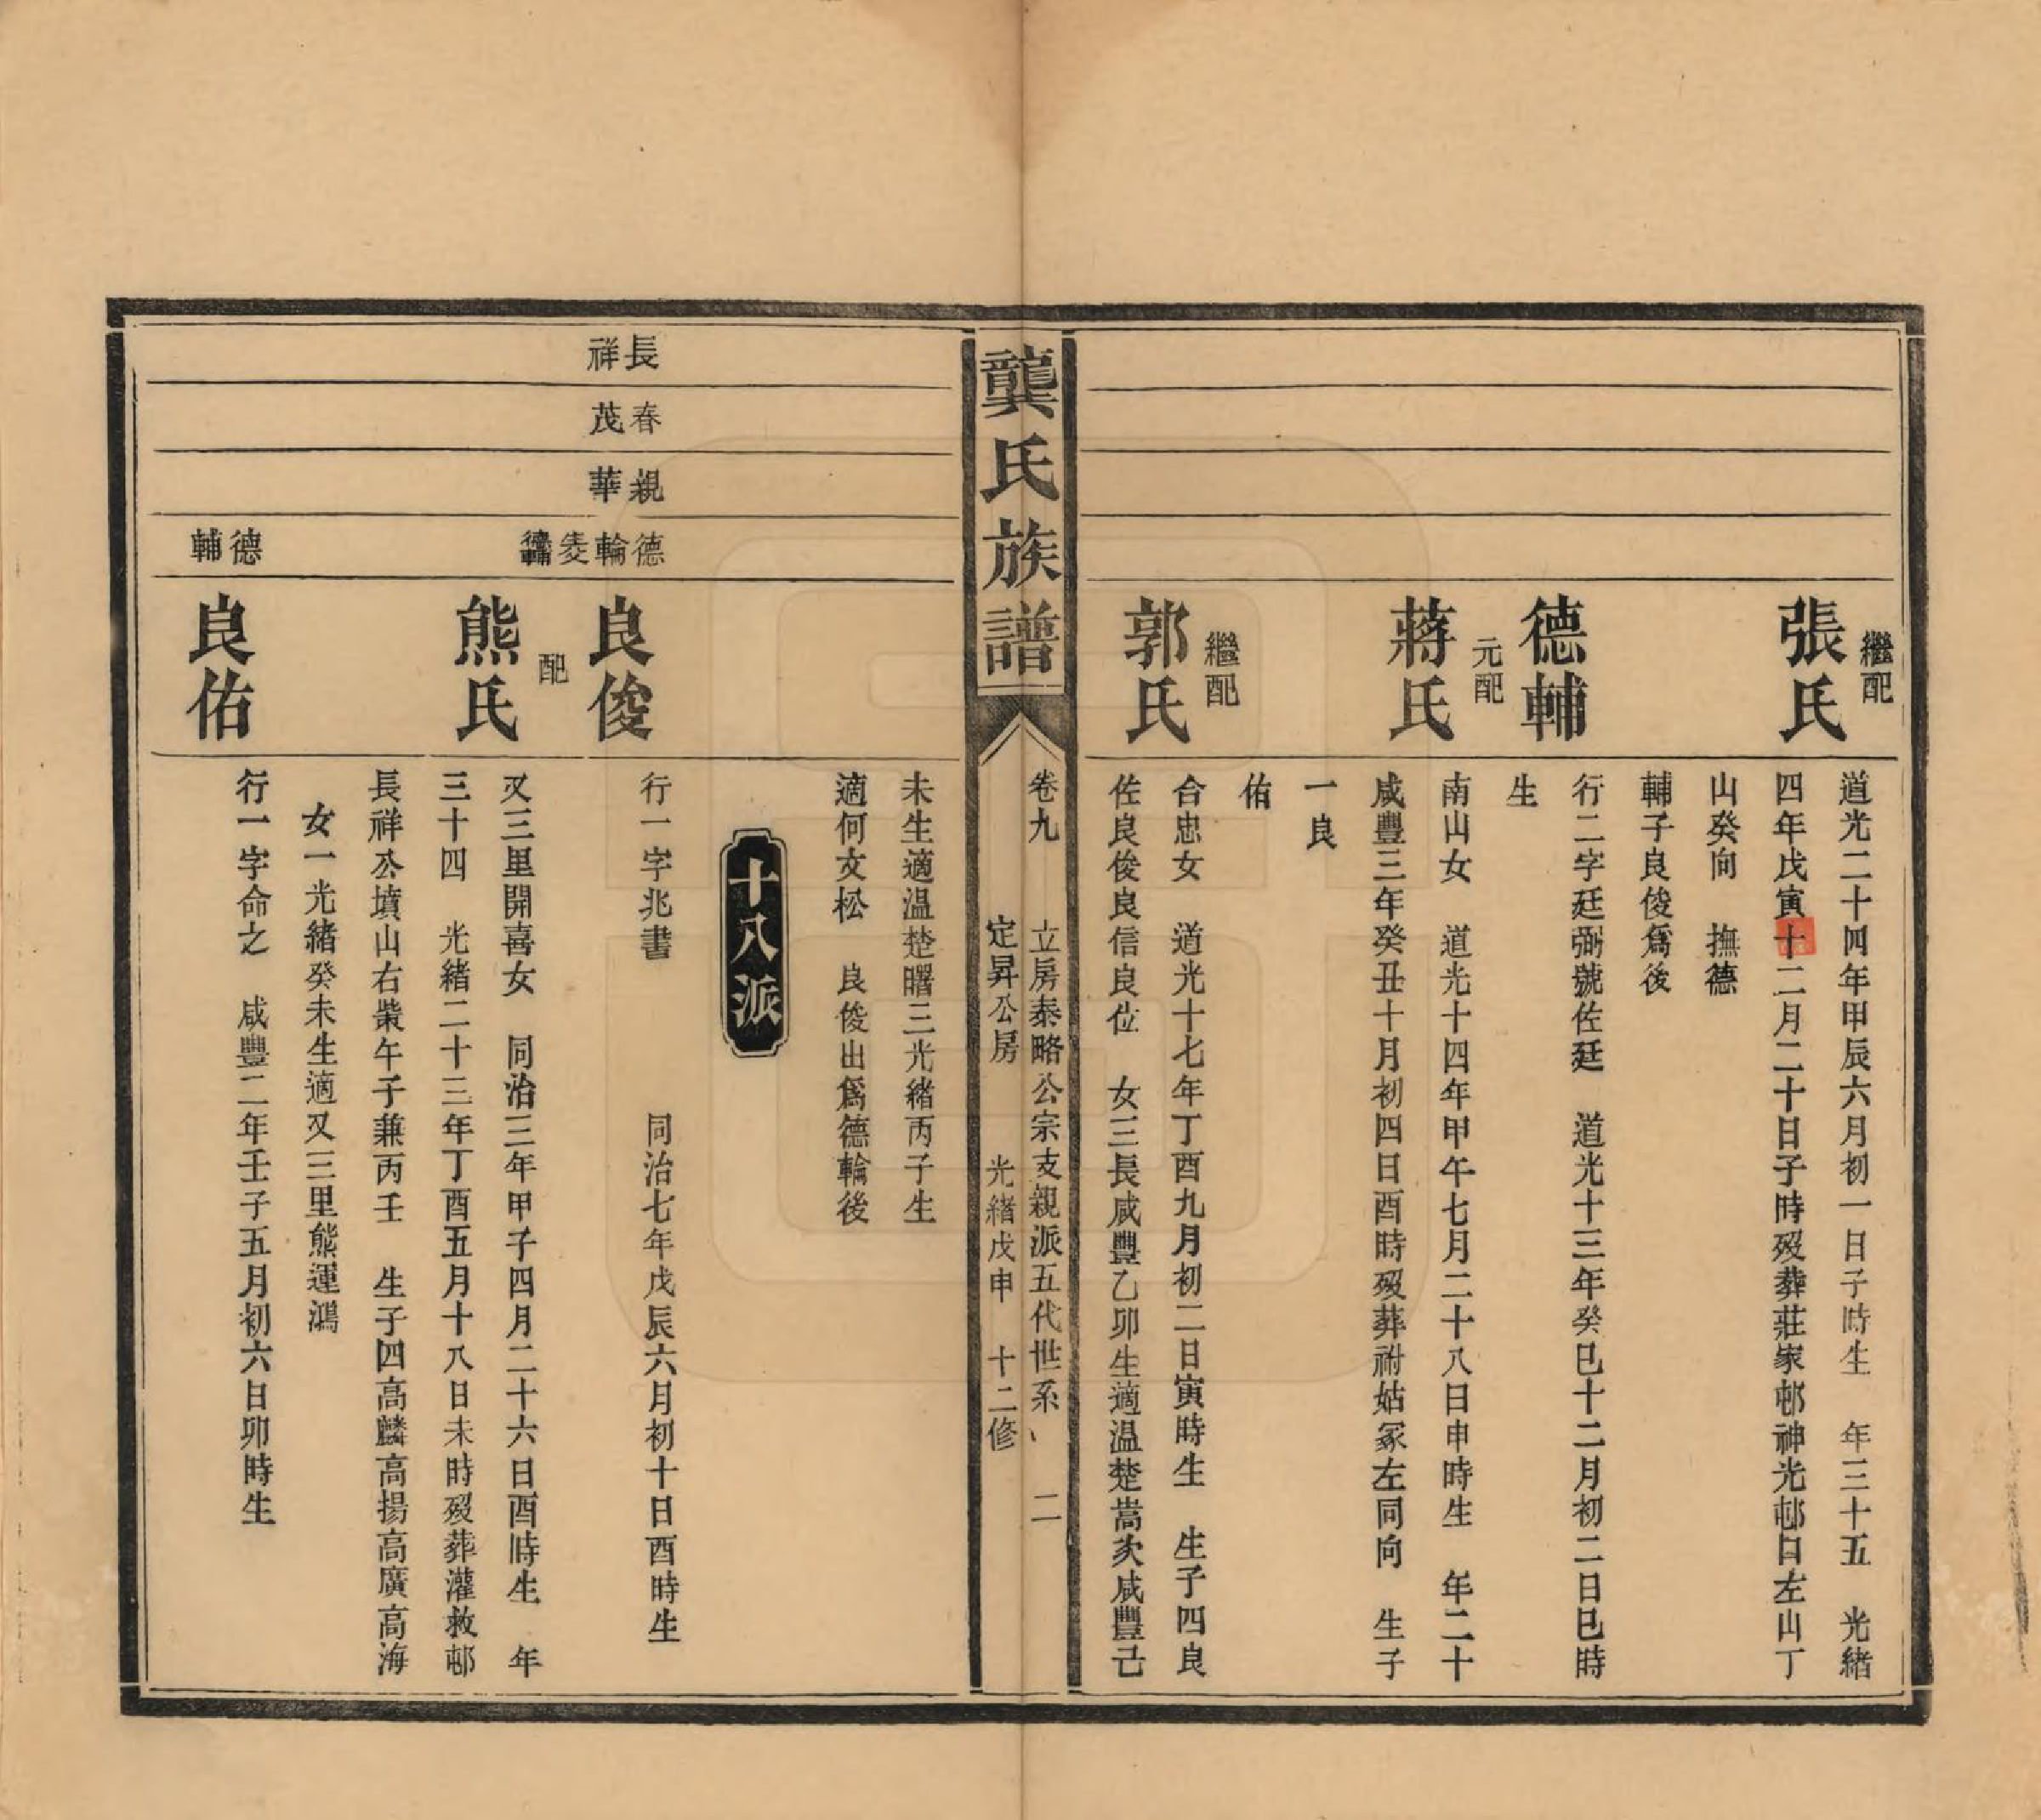 繼配
張氏
道光二十四年甲辰六月初一日子時生 年三十五 光緒
四年戊寅十二月二十日子時歿葬莊家邨神光邨口左山丁
山癸向 撫德
輔子良俊爲後
德輔
行二字廷弼號佐廷 道光十三年癸巳十二月初二日巳時
生
元配
蔣氏
南山女 道光十四年甲午七月二十八日申時生 年二十
咸豐三年癸丑十月初四日酉時歿葬祔姑冢左同向 生子
一良
佑
繼配
郭氏
合忠女 道光十七年丁酉九月初二日寅時生 生子四良
佐良俊良信良位 女三長咸豐乙卯生適温楚嵩次咸豐己
龔氏族譜
卷九 立房泰略公宗支親派五代世系 二
定昇公房 光緒戊申 十二修
未生適温楚曙三光緒丙子生
適何文松 良俊出爲德輪後
十八派
長祥
春茂
親華
德輪
德輔
良俊
行一字兆書 同治七年戊辰六月初十日酉時生
配
熊氏
又三里開喜女 同治三年甲子四月二十六日酉時生 年
三十四 光緒二十三年丁酉五月十八日未時歿葬灌救邨
長祥公墳山右柴午子兼丙壬 生子四高麟高揚高廣高海
女一光緒癸未生適又三里熊運鴻
德輔
良佑
行一字命之 咸豐二年壬子五月初六日卯時生